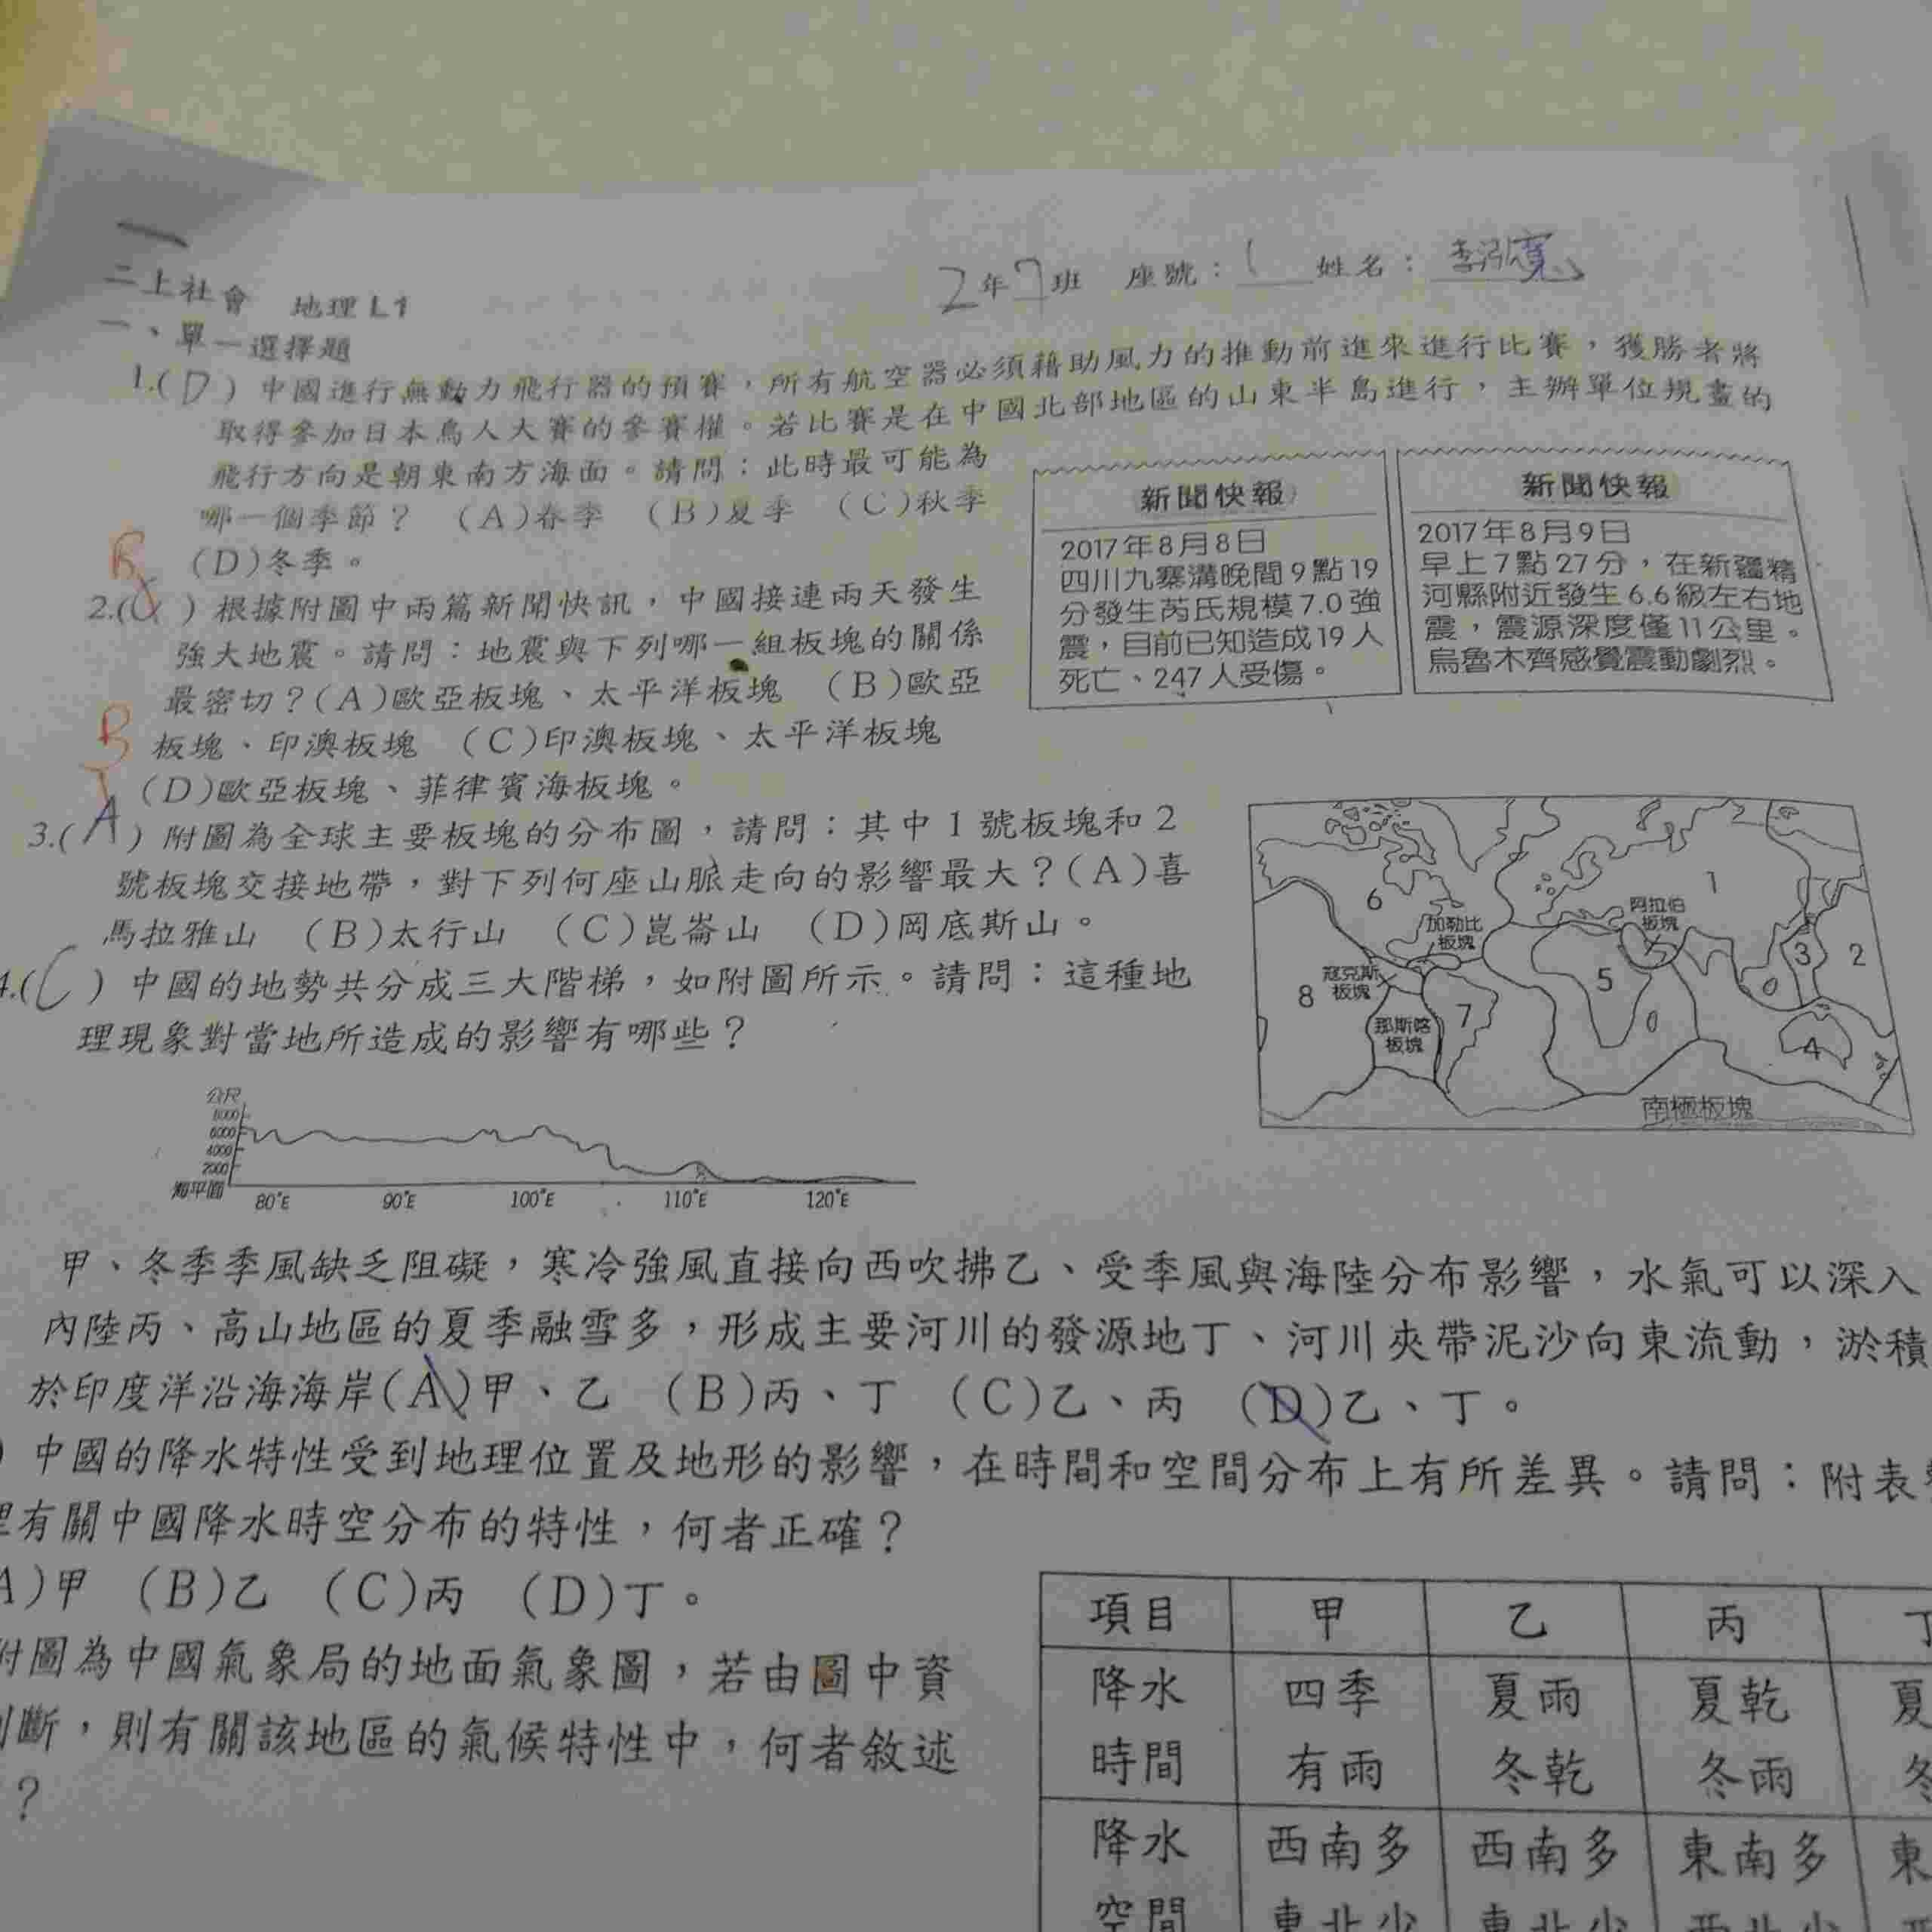 二上社會 地理 L1
2年7班 座號：1 姓名：李泓寬
一、單一選擇題
1.(D) 中國進行無動力飛行器的預賽，所有航空器必須藉助風力的推動前進來進行比賽，獲勝者將
取得參加日本鳥人大賽的參賽權。若比賽是在中國北部地區的山東半島進行，主辦單位規畫的
飛行方向是朝東南方海面。請問：此時最可能為
哪一個季節？ (A)春季 (B)夏季 (C)秋季
(D)冬季。
B
2.( ) 根據附圖中兩篇新聞快訊，中國接連兩天發生
強大地震。請問：地震與下列哪一組板塊的關係
最密切？(A)歐亞板塊、太平洋板塊 (B)歐亞
板塊、印澳板塊 (C)印澳板塊、太平洋板塊
(D)歐亞板塊、菲律賓海板塊。
新聞快報
2017年8月8日
四川九寨溝晚間9點19
分發生芮氏規模7.0強
震，目前已知造成19人
死亡、247人受傷。
新聞快報
2017年8月9日
早上7點27分，在新疆精
河縣附近發生6.6級左右地
震，震源深度僅11公里。
烏魯木齊感覺震動劇烈。
B
3.(A) 附圖為全球主要板塊的分布圖，請問：其中1號板塊和2
號板塊交接地帶，對下列何座山脈走向的影響最大？(A)喜
馬拉雅山 (B)太行山 (C)崑崙山 (D)岡底斯山。
6
1
加勒比
板塊
阿拉伯
板塊
3
2
寇克斯
板塊
8
5
7
那斯喀
板塊
4
南極板塊
4.(C) 中國的地勢共分成三大階梯，如附圖所示。請問：這種地
理現象對當地所造成的影響有哪些？
公尺
8000
6000
4000
2000
海平面
80°E 90°E 100°E 110°E 120°E
甲、冬季季風缺乏阻礙，寒冷強風直接向西吹拂乙、受季風與海陸分布影響，水氣可以深入
內陸丙、高山地區的夏季融雪多，形成主要河川的發源地丁、河川夾帶泥沙向東流動，淤積
於印度洋沿海海岸(A)甲、乙 (B)丙、丁 (C)乙、丙 (D)乙、丁。
) 中國的降水特性受到地理位置及地形的影響，在時間和空間分布上有所差異。請問：附表
有關中國降水時空分布的特性，何者正確？
A)甲 (B)乙 (C)丙 (D)丁。
附圖為中國氣象局的地面氣象圖，若由圖中資
判斷，則有關該地區的氣候特性中，何者敘述
？
項目 甲 乙 丙 丁
降水 四季 夏雨 夏乾 夏
時間 有雨 冬乾 冬雨 冬
降水 西南多 西南多 東南多 東
空間 東北少 東北少 西北少